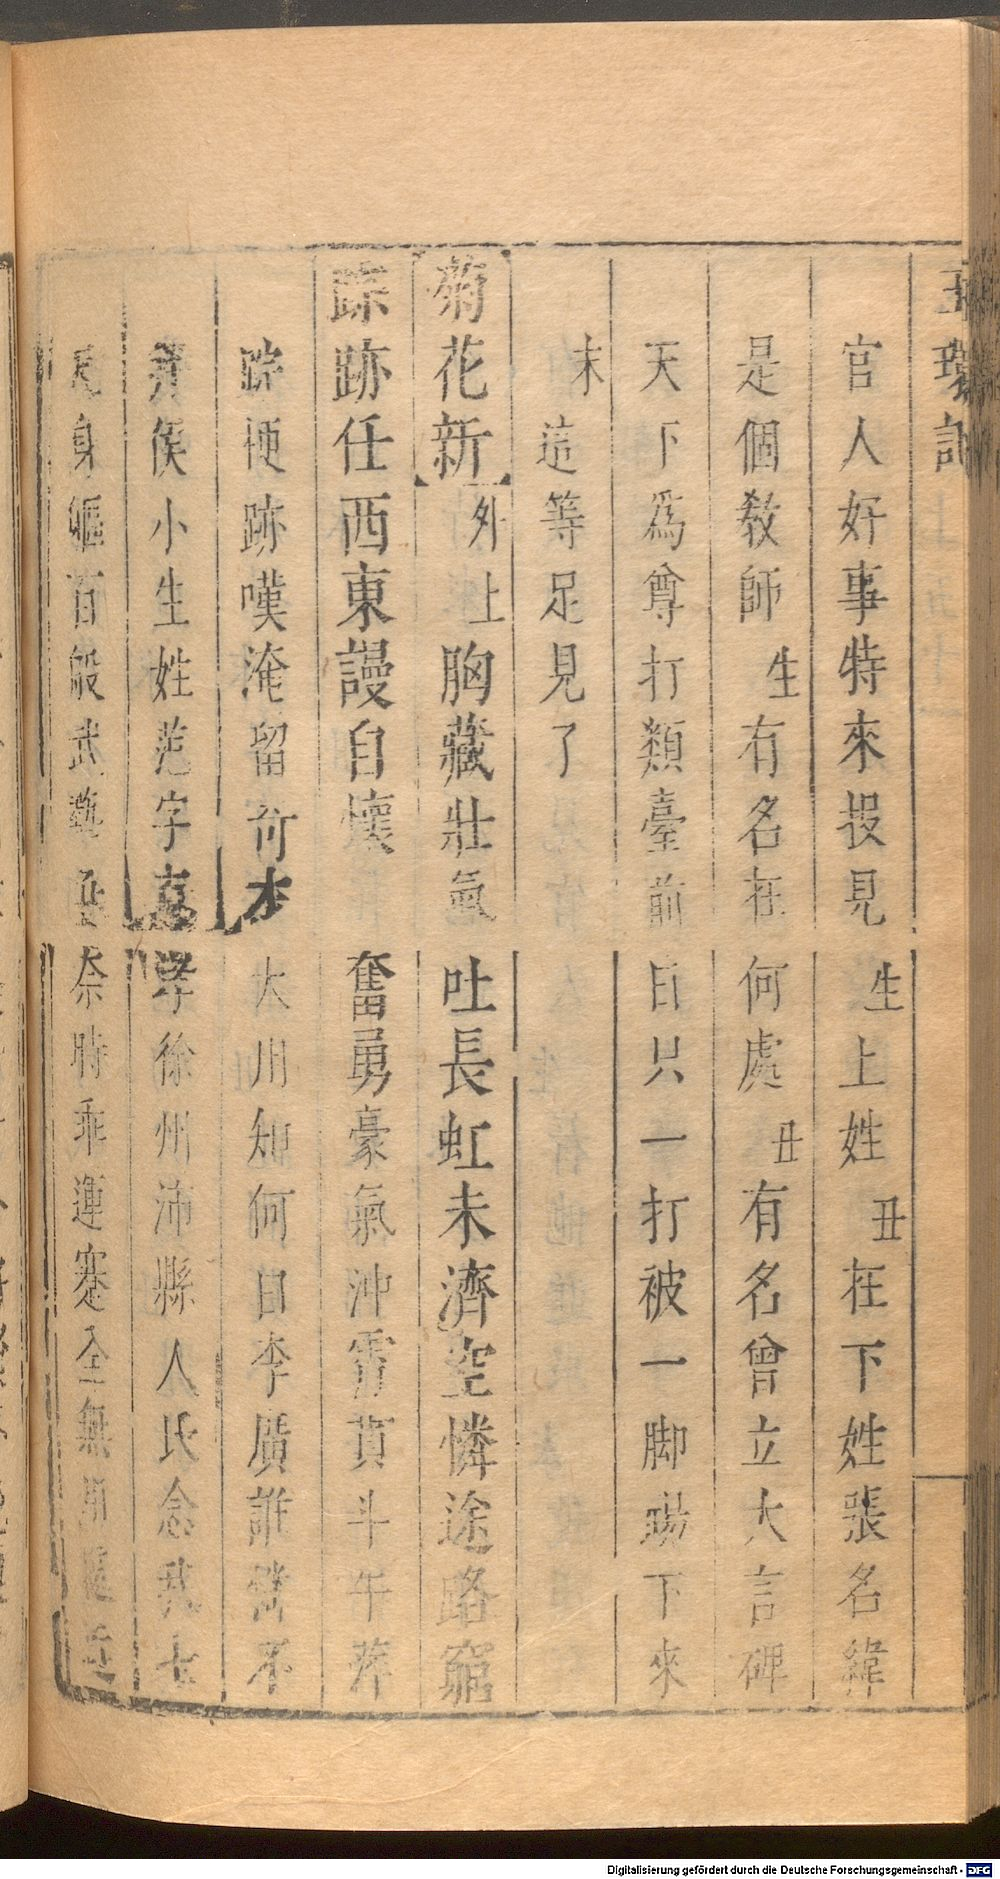 玉環記
官人好事特來投見生上姓丑在下姓張名緯
是個教師生有名在何處丑有名曾立大言碑
天下為尊打類臺前自只一打被一脚踢下來
末這等足見了
菊花新外上胸藏壯氣吐長虹未濟空憐途路窮
踪跡任西東謾自懷奮勇豪氣沖霄貫斗牛萍
踪梗跡嘆淹留大川知何日李廣誰憐不
侯小生姓范字孝徐州沛縣人氏念我七
尺身軀百般武藝奈時乖運蹇全無
Digitalisierung gefördert durch die Deutsche Forschungsgemeinschaft - DFG